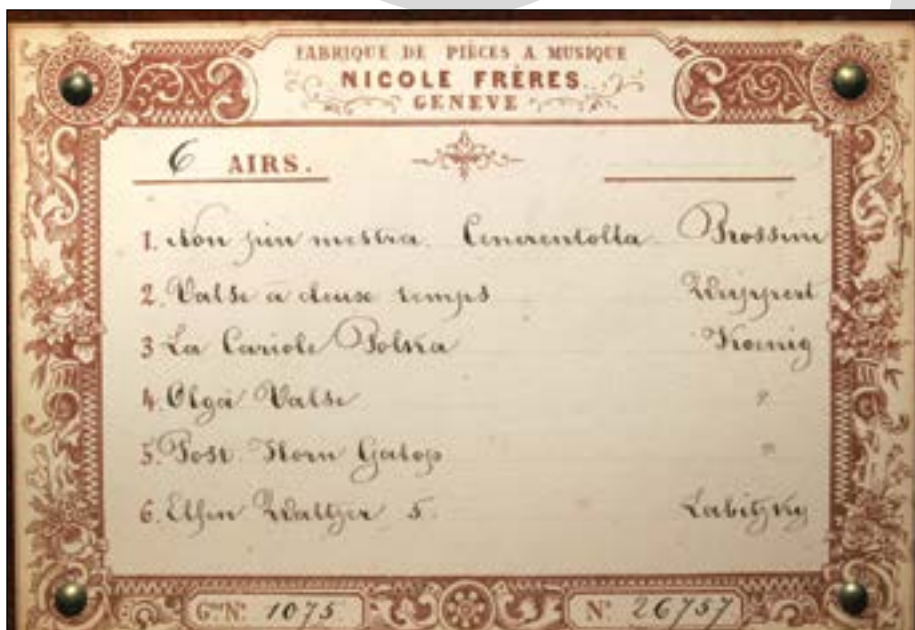 FABRIQUE DE PIÈCES A MUSIQUE
NICOLE FRÈRES
GENEVE
6 AIRS.
1. Non piu mestra Cenerentolla Rossini
2. Valse a deux temps Weippert
3 La Cariole Polka Koenig
4. Olga Valse "
5. Post Horn Galop "
6. Elfin Waltzer 5. Labitzky
Gme No. 1075 No. 26757